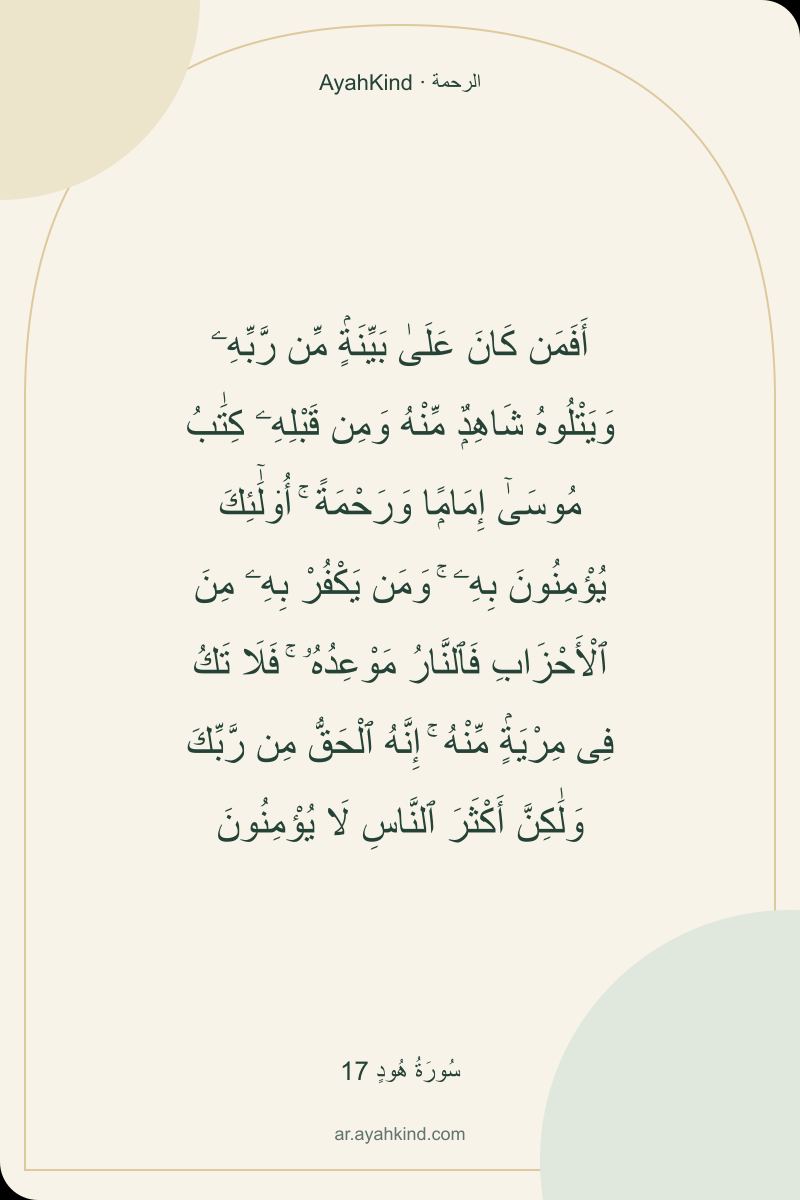 AyahKind · الرحمة
أَفَمَن كَانَ عَلَىٰ بَيِّنَةٍۢ مِّن رَّبِّهِۦ
وَيَتْلُوهُ شَاهِدٌۭ مِّنْهُ وَمِن قَبْلِهِۦ كِتَٰبُ
مُوسَىٰٓ إِمَامًۭا وَرَحْمَةً ۚ أُو۟لَٰٓئِكَ
يُؤْمِنُونَ بِهِۦ ۚ وَمَن يَكْفُرْ بِهِۦ مِنَ
ٱلْأَحْزَابِ فَٱلنَّارُ مَوْعِدُهُۥ ۚ فَلَا تَكُ
فِى مِرْيَةٍۢ مِّنْهُ ۚ إِنَّهُ ٱلْحَقُّ مِن رَّبِّكَ
وَلَٰكِنَّ أَكْثَرَ ٱلنَّاسِ لَا يُؤْمِنُونَ
سُورَةُ هُودٍ 17
ar.ayahkind.com